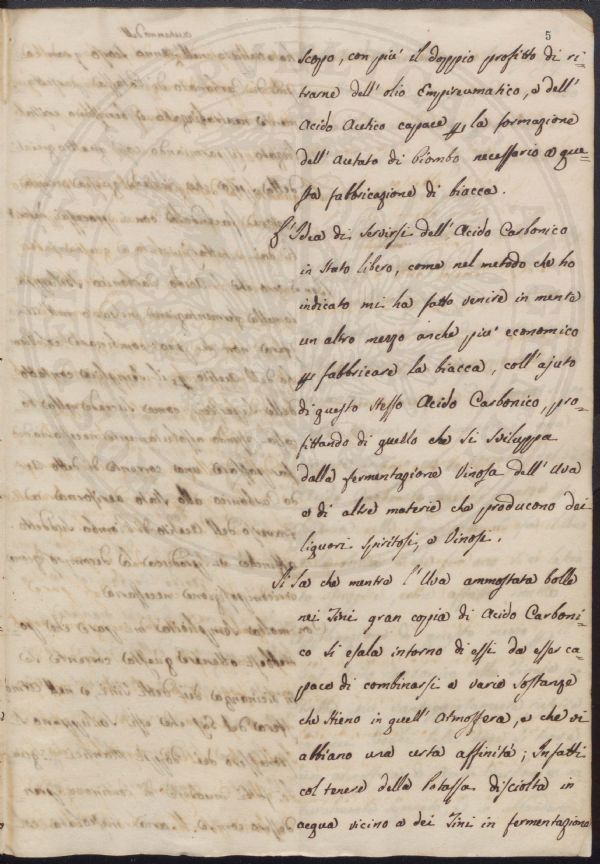 5
scopo, con più il doppio profitto di ri-
trarne dell' olio Empireumatico, e dell'
Acido Acetico capace la formazione
dell' acetato di piombo necessario a que-
sta fabbricazione di biacca.
L' Idea di servirsi dell' Acido Carbonico
in stato libero, come nel metodo che ho
indicato mi ha fatto venire in mente
un altro mezzo anche più economico
fabbricare la biacca, coll' ajuto
di questo stesso Acido Carbonico, pro-
fittando di quello che si sviluppa
dalla fermentazione Vinosa dell' Uva
e di altre materie che producono dei
liquori spiritosi, e Vinosi.
Si sa che mentre l' Uva ammostata bolle
nei Tini gran copia di Acido Carboni-
co si esala intorno di essi da esser ca-
pace di combinarsi a varie sostanze
che stieno in quell' atmosfera, e che vi
abbiano una certa affinità; Infatti
col tenere della Potassa disciolta in
acqua vicino a dei Tini in fermentazione